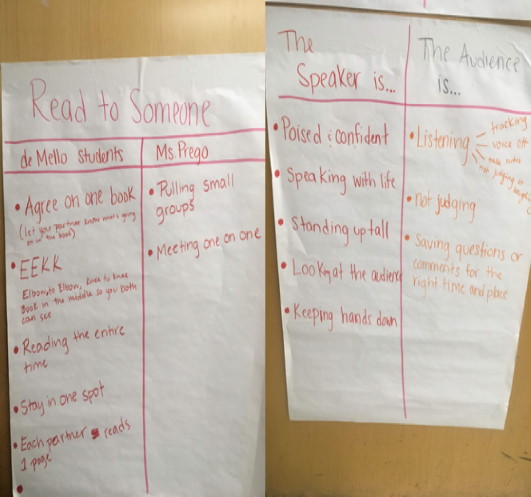 Read to Someone
de Mello Students
• Agree on one book
(let your partner know what's going
on in the book)
• EEKK
Elbow to Elbow, Knee to Knee
Book in the middle so you both
can see
• Reading the entire
time
• Stay in one spot
• Each partner reads
1 page
Ms. Prego
• Pulling small
groups
• Meeting one on one
The
Speaker is...
• Poised & confident
• Speaking with life
• Standing up tall
• Looking at the audience
• Keeping hands down
The Audience
is...
• Listening
tracking
voice off
take notes
not judging or
• not judging
• Saving questions or
comments for the
right time and place